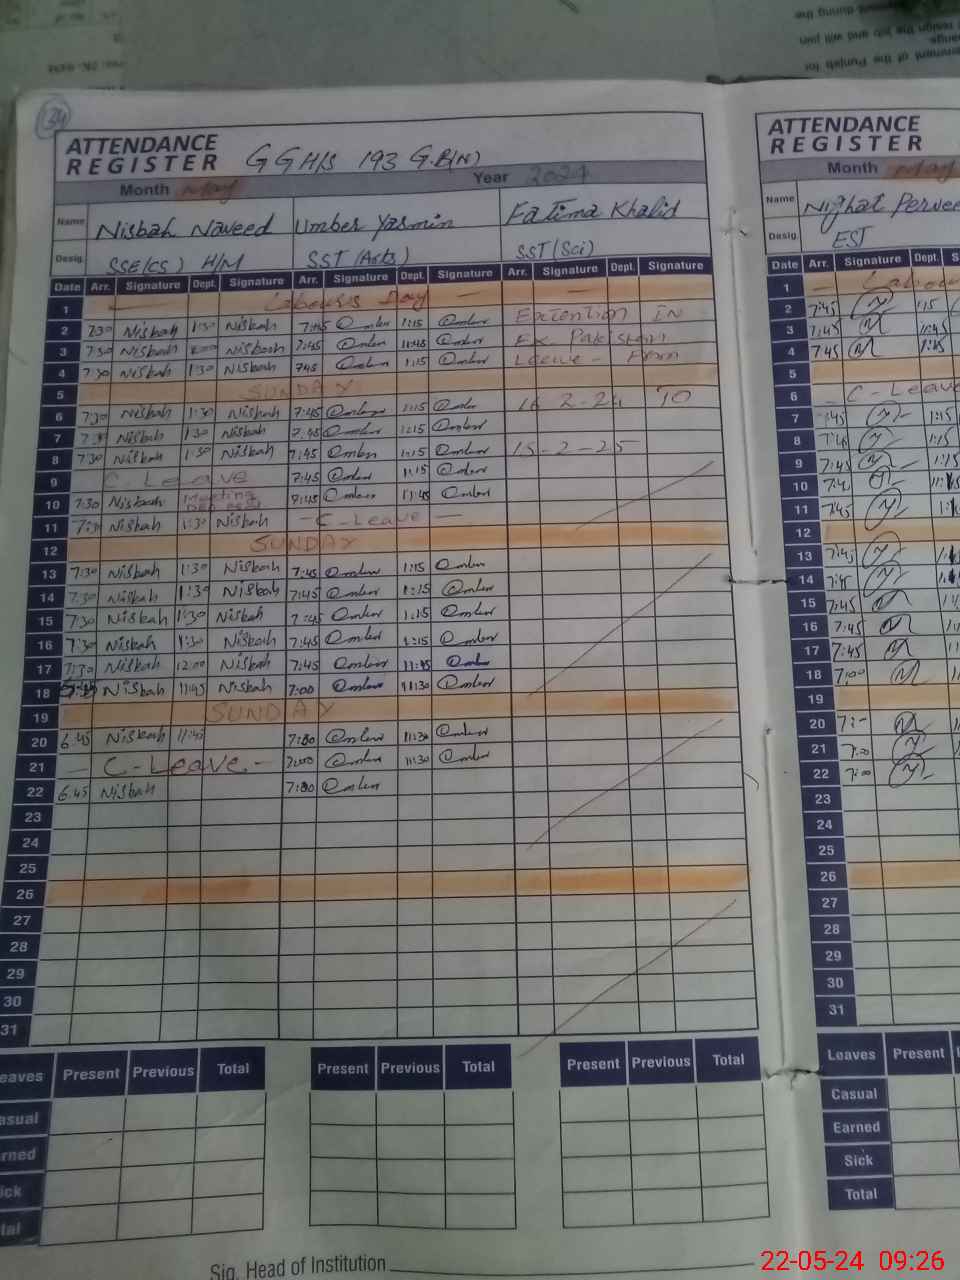 34
ATTENDANCE
REGISTER GGH/S 193 G.B(N)
Month May Year 2024
Name Nisbah Naveed Umber Yasmin Fatima Khalid
Desig. SSE(CS) H/M SST (Arts) SST (Sci)
Date Arr. Signature Dept. Signature Arr. Signature Dept. Signature Arr. Signature Dept. Signature
1 Labour's Day
2 7:30 Nisbah 1:30 Nisbah 7:45 Omber 1:15 Omber Extention IN
3 7:30 Nisbah Nisbah 7:45 Omber 11:45 Omber Ex Pakistan
4 7:30 Nisbah 1:30 Nisbah 7:45 Omber 1:15 Omber Leave - From
5 SUNDAY
6 7:30 Nisbah 1:30 Nisbah 7:45 Omber 1:15 Omber 16-2-24 TO
7 7:30 Nisbah 1:30 Nisbah 7:45 Omber 1:15 Omber
8 7:30 Nisbah 1:30 Nisbah 7:45 Omber 1:15 Omber 15-2-25
9 C. Leave 7:45 Omber 1:15 Omber
10 7:30 Nisbah Meeting 7:45 Omber 11:45 Omber
11 7:30 Nisbah 1:30 Nisbah - C - Leave -
12 SUNDAY
13 7:30 Nisbah 1:30 Nisbah 7:45 Omber 1:15 Omber
14 7:30 Nisbah 1:30 Nisbah 7:45 Omber 1:15 Omber
15 7:30 Nisbah 1:30 Nisbah 7:45 Omber 1:15 Omber
16 7:30 Nisbah 1:30 Nisbah 7:45 Omber 1:15 Omber
17 7:30 Nisbah 12:00 Nisbah 7:45 Omber 11:45 Omber
18 Nisbah 11:45 Nisbah 7:00 Omber 11:30 Omber
19 SUNDAY
20 6:45 Nisbah 11:45 7:00 Omber 11:30 Omber
21 - C - Leave - 7:00 Omber 11:30 Omber
22 6:45 Nisbah 7:00 Omber
23
24
25
26
27
28
29
30
31
Leaves Present Previous Total Present Previous Total Present Previous Total
Casual
Earned
Sick
Total
Sig. Head of Institution
ATTENDANCE
REGISTER
Month May
Name Nighat Parvee
Desig. EST
Date Arr. Signature Dept. S
1 - Labou
2 7:45 1:15
3 7:45 11:45
4 7:45 1:15
5
6 - C - Leave
7 7:45 1:15
8 7:45 1:15
9 7:45 1:15
10 7:45
11 7:45
12
13 7:45
14 7:45
15 7:45
16 7:45
17 7:45
18 7:00
19
20 7:-
21 7:00
22 7:00
23
24
25
26
27
28
29
30
31
Leaves Present
Casual
Earned
Sick
Total
22-05-24 09:26